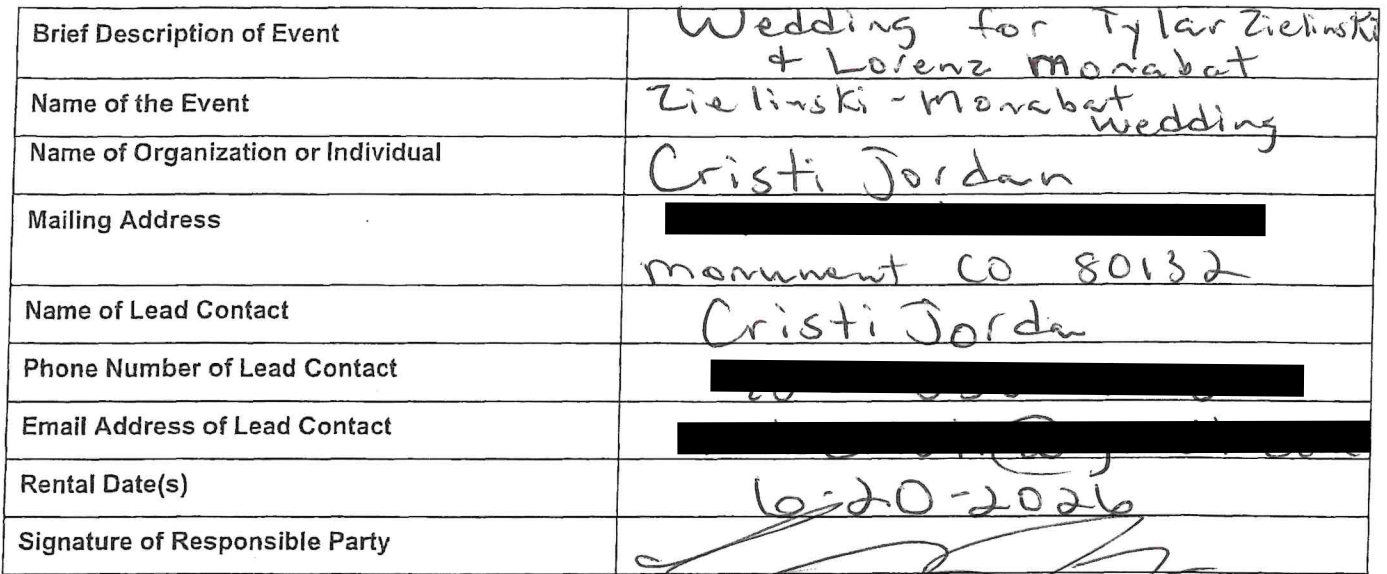 Brief Description of Event
Wedding for Tylar Zielinski
+ Lorenz Monabat
Name of the Event
Zielinski - Monabat
Wedding
Name of Organization or Individual
Cristi Jordan
Mailing Address
monument CO 80132
Name of Lead Contact
Cristi Jordan
Phone Number of Lead Contact
Email Address of Lead Contact
Rental Date(s)
6-20-2026
Signature of Responsible Party